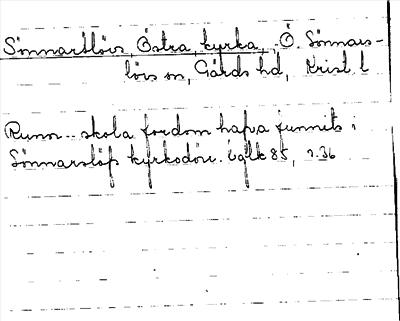 Sönnarslövs, Östra, kyrka, Ö. Sönnars-
lövs sn, Gärds hd, Krist. l
Runor.. skola fordom hafva funnits i
Sönnarslöfs kyrkodörr. 85, s. 36